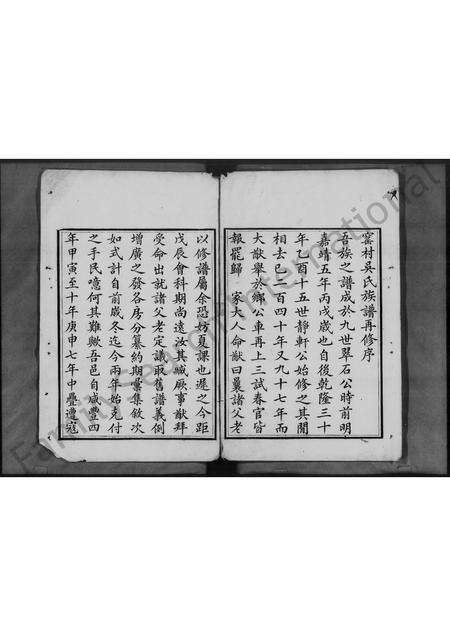 窑村吳氏族譜再修序
吾族之譜成於九世翠石公時前明
嘉靖五年丙戌歲也自後乾隆三十
年乙酉十五世靜軒公始修之其間
相去已二百四十年又九十七年而
大猷舉於鄉公車再上三試春官皆
報罷歸 家大人命猷曰曩諸父老
以修譜屬余恐妨夏課也遲之今距
戊辰會科期尚遠汝其蕆厥事猷拜
受命出就諸父老定議取舊譜義例
增廣之發各房分纂約期彙集敘次
如式計自前歲冬迄今兩年始克付
之手民噫何其難歟吾邑自咸豐四
年甲寅至十年庚申七年中疊遭寇
Family Search International